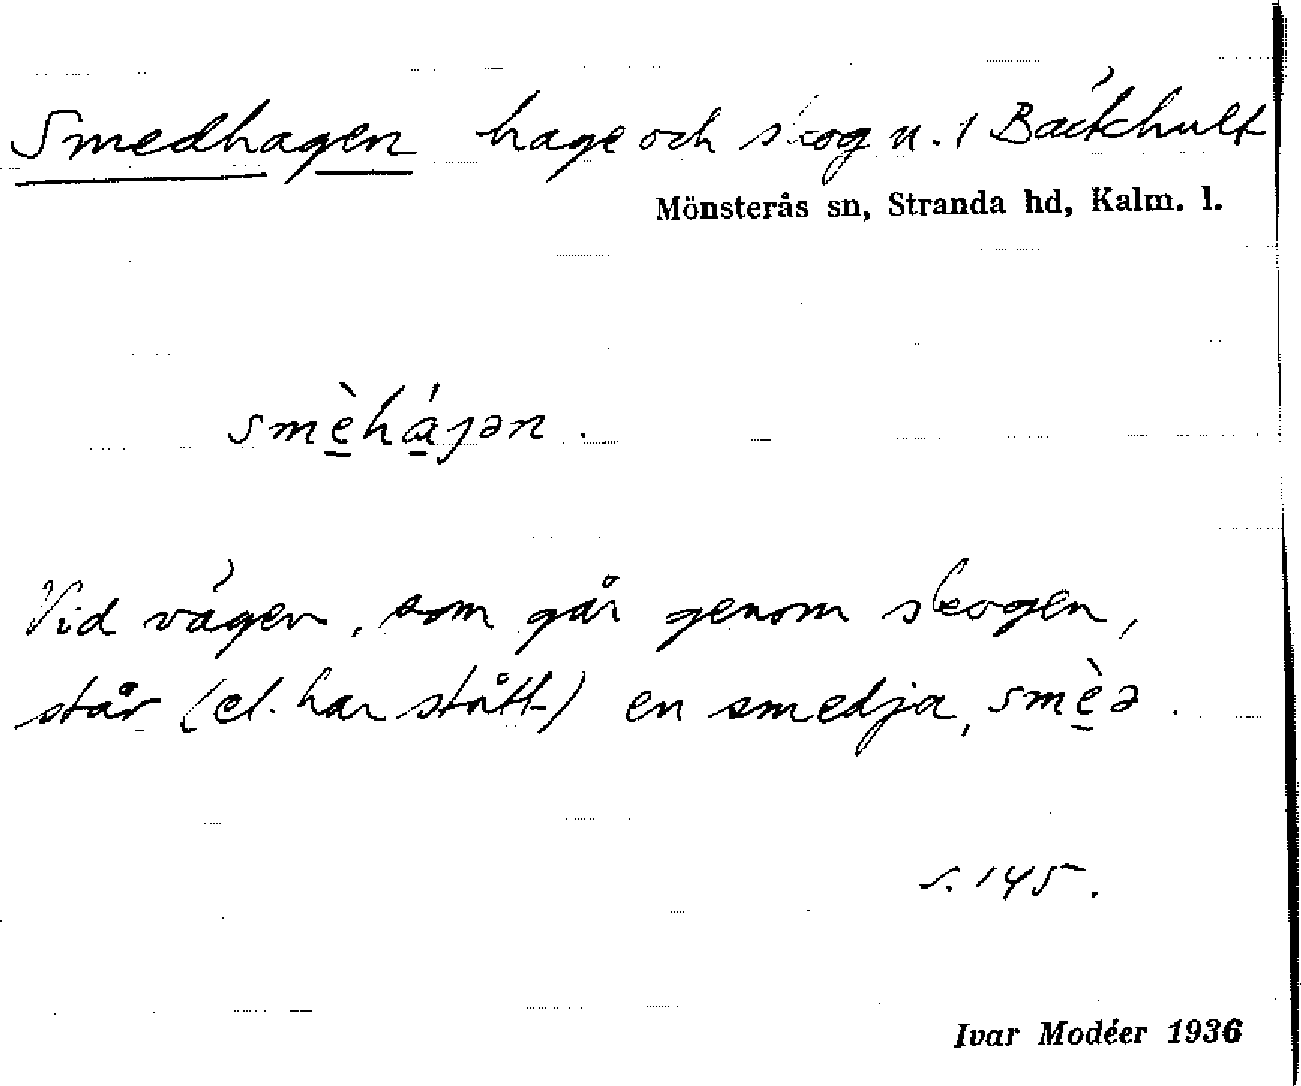 Smedhagen hage och skog u. 1 Bäckhult
Mönsterås sn, Stranda hd, Kalm. l.
smè̱há̱jən.
Vid vägen, som går genom skogen,
står (el. har stått) en smedja, smè̱ə.
s. 145.
Ivar Modéer 1936